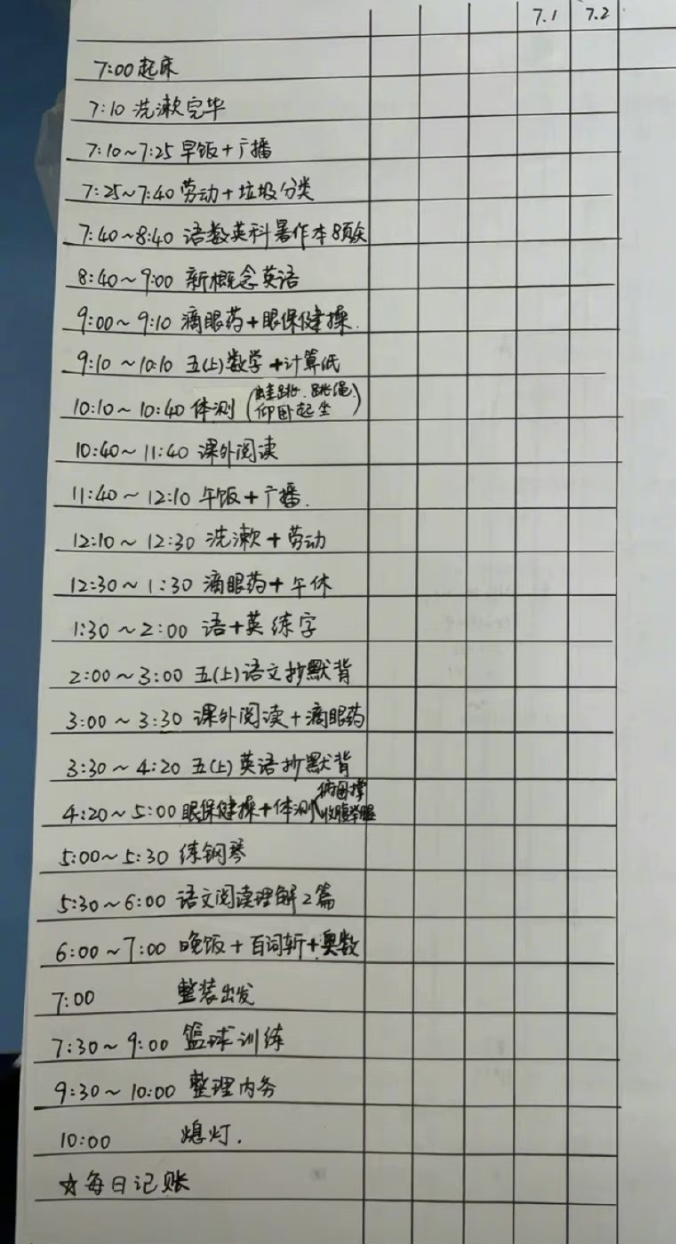 7.1 7.2
7:00 起床
7:10 洗漱完毕
7:10~7:25 早饭+广播
7:25~7:40 劳动+垃圾分类
7:40~8:40 语数英科暑作本8页
8:40~9:00 新概念英语
9:00~9:10 滴眼药+眼保健操.
9:10~10:10 五(上)数学+计算纸
10:10~10:40 体测(蛙跳、跳绳、仰卧起坐)
10:40~11:40 课外阅读
11:40~12:10 午饭+广播.
12:10~12:30 洗漱+劳动
12:30~1:30 滴眼药+午休
1:30~2:00 语+英练字
2:00~3:00 五(上)语文抄默背
3:00~3:30 课外阅读+滴眼药
3:30~4:20 五(上)英语抄默背
4:20~5:00 眼保健操+体测(俯卧撑
5:00~5:30 练钢琴
5:30~6:00 语文阅读理解2篇
6:00~7:00 晚饭+百词斩+奥数
7:00 整装出发
7:30~9:00 篮球训练
9:30~10:00 整理内务
10:00 熄灯.
☆每日记账